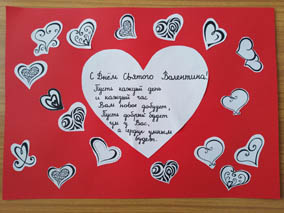 С Днём Святого Валентина!
Пусть каждый день
и каждый час
Вам новое добудет,
Пусть добрым будет
ум у Вас,
а сердце умным
будет.